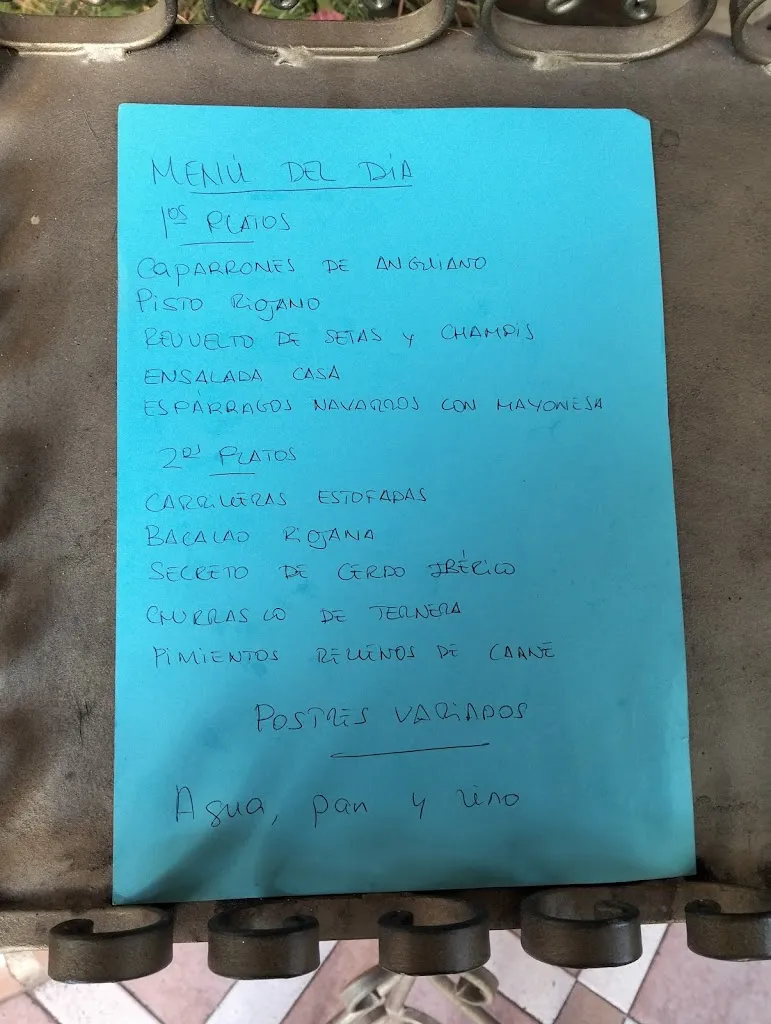 MENÚ DEL DÍA
1os PLATOS
CAPARRONES DE ANGUIANO
PISTO RIOJANO
REVUELTO DE SETAS Y CHAMPIS
ENSALADA CASA
ESPÁRRAGOS NAVARROS CON MAYONESA
2os PLATOS
CARRILLERAS ESTOFADAS
BACALAO RIOJANA
SECRETO DE CERDO IBÉRICO
CHURRASCO DE TERNERA
PIMIENTOS RELLENOS DE CARNE
POSTRES VARIADOS
Agua, pan y vino